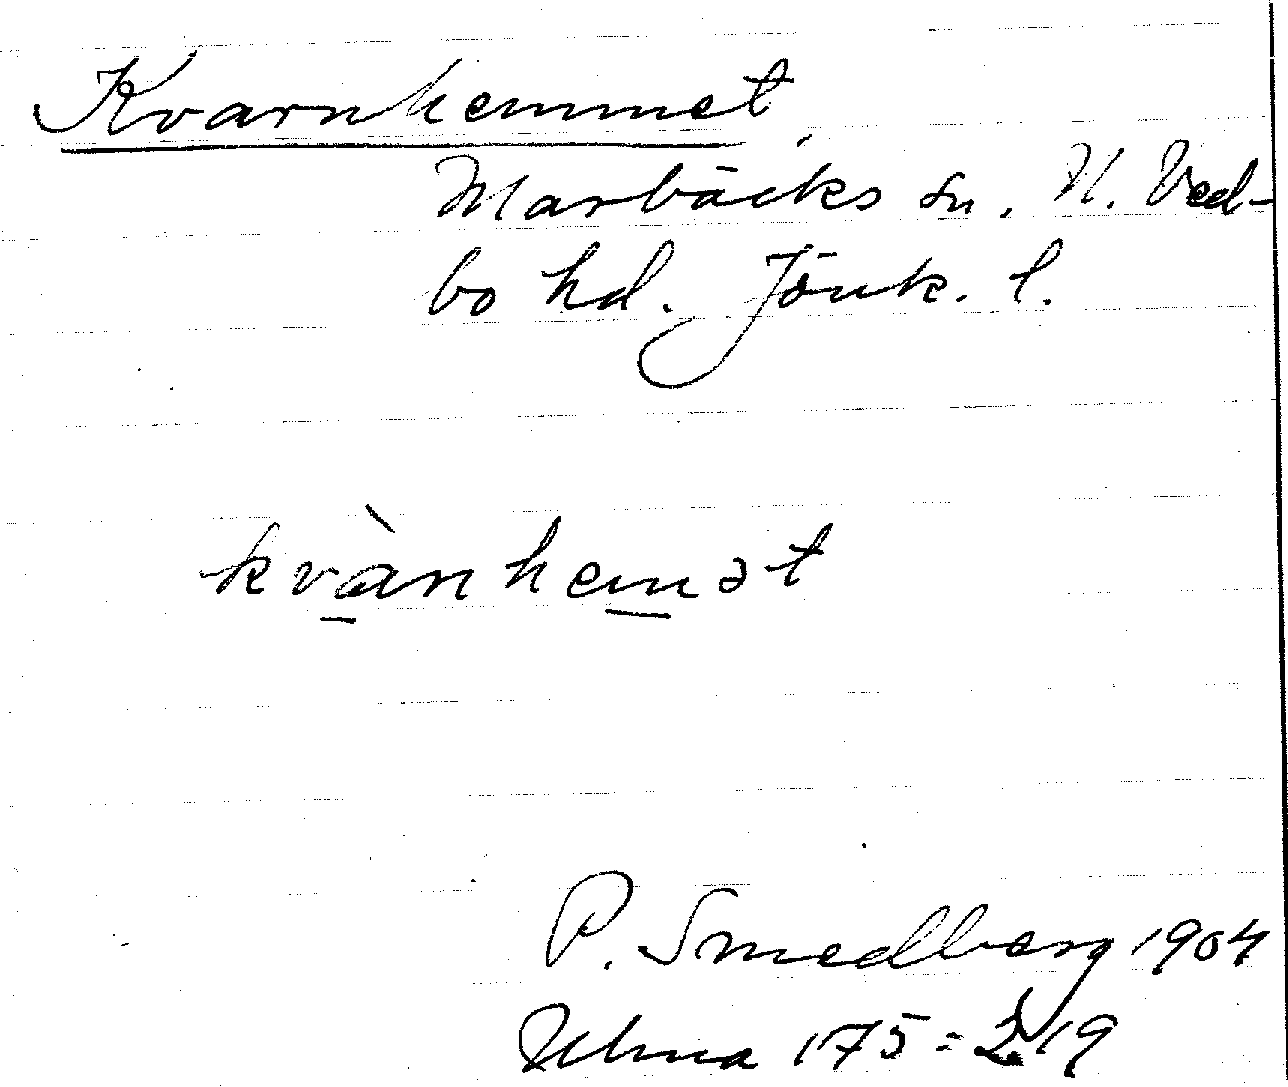 Kvarnhemmet,
Marbäcks sn. N. Ved-
bo hd. Jönk. l.
kvànhemət
P. Smedberg 1904
Ulma 175:219